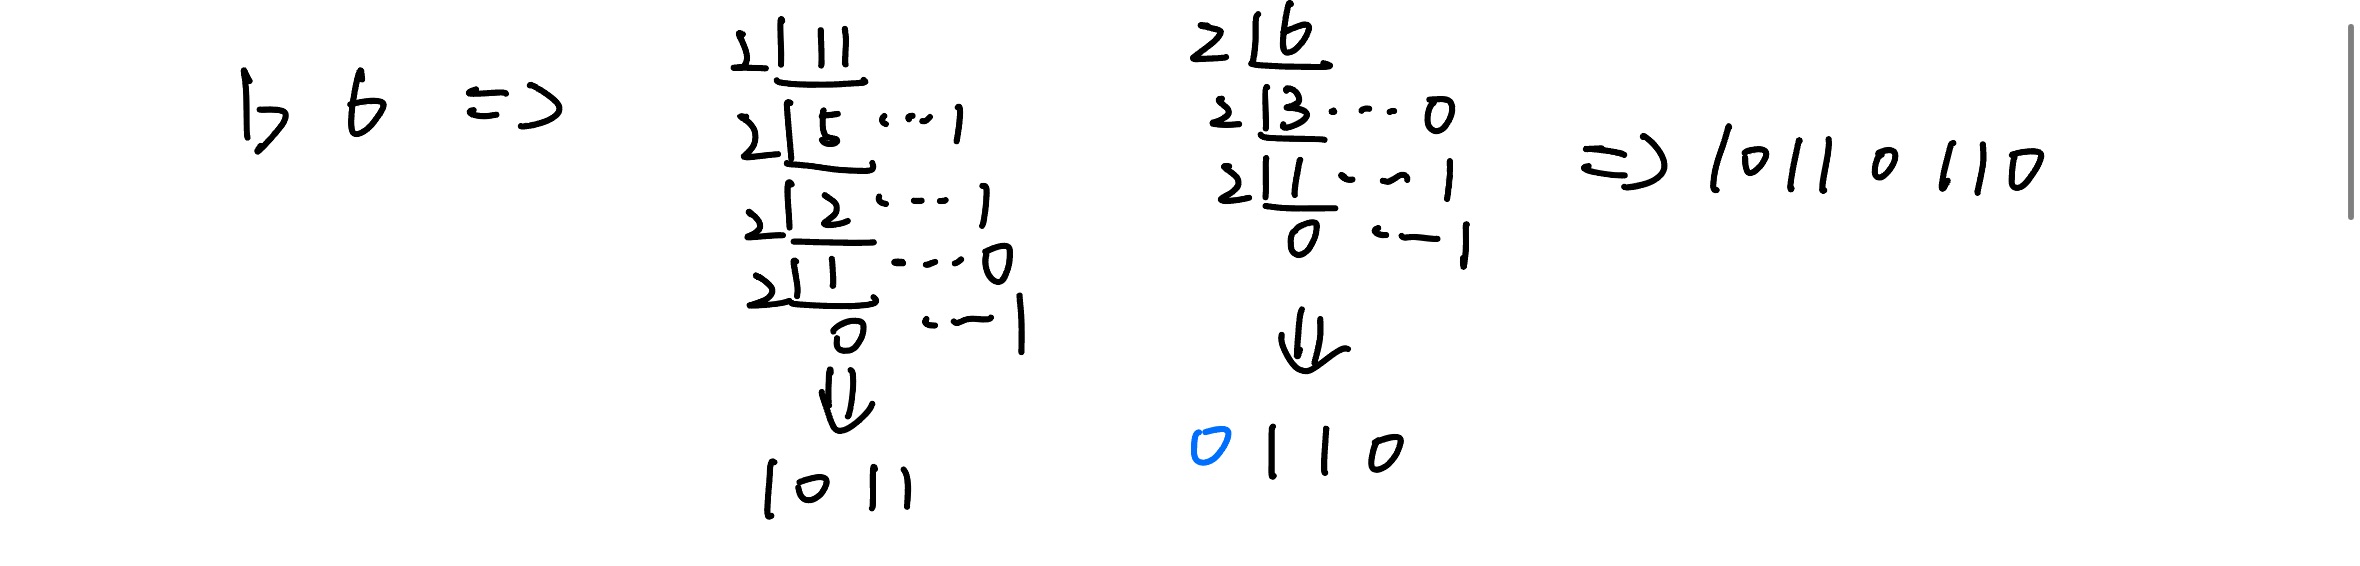 b 6 =>
2 | 11
2 | 5 ... 1
2 | 2 ... 1
2 | 1 ... 0
0 ... 1
⇓
1 0 1 1
2 | 6
2 | 3 ... 0
2 | 1 ... 1
0 ... 1
⇓
0 1 1 0
=> 1 0 1 1 0 1 1 0